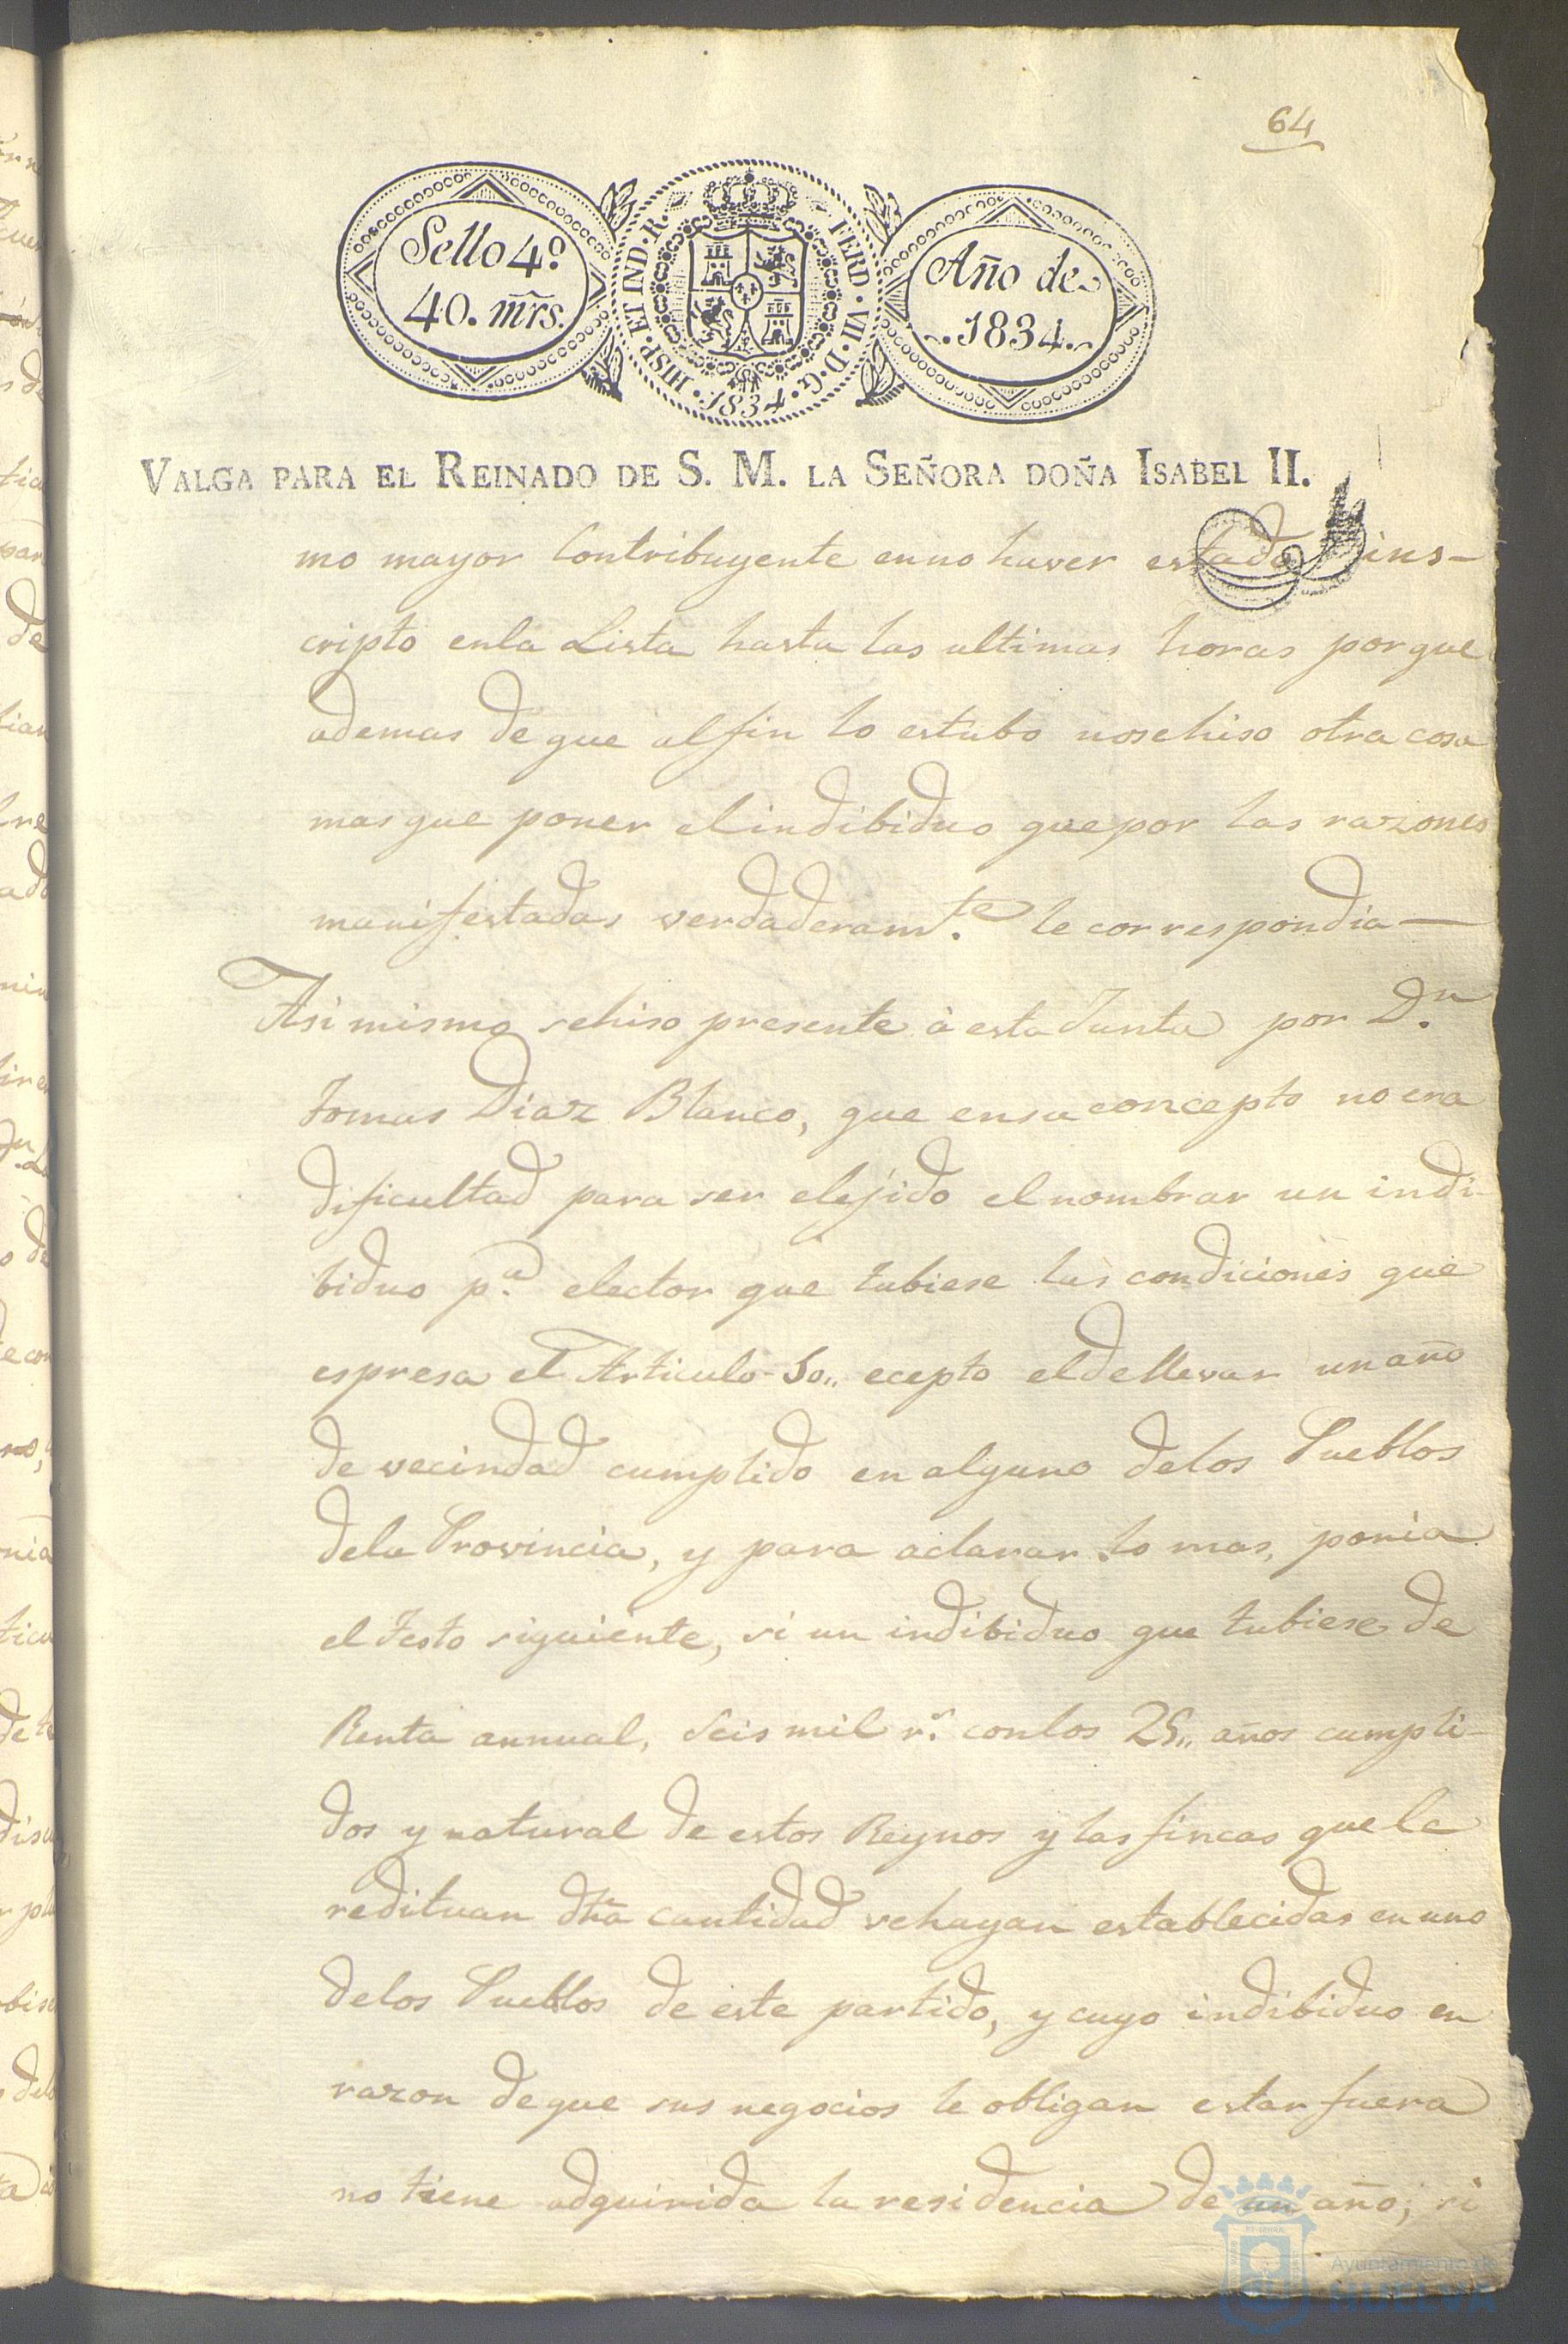 64
Sello 4º.
40. mrs.
HISP. ET IND. R. FERD. VII. D. G. 1834.
Año de
1834.
VALGA PARA EL REINADO DE S. M. LA SEÑORA DOÑA ISABEL II.
mo mayor Contribuyente enno haver estado ins-
cripto enla Lista hasta las ultimas horas porque
ademas de que alfin lo estubo nosehiso otra cosa
mas que poner elindibiduo que por las razones
manifestadas verdaderam.te le correspondia—
Asi mismo sehiso presente à esta Junta por D.n
Tomas Diaz Blanco, que ensu concepto no era
dificultad para ser elejido el nombrar un indi-
biduo p.a elector que tubiese las condiciones que
espresa el Articulo 50,, ecepto eldellevar un año
de vecindad cumplido en alguno delos Pueblos
dela Provincia, y para aclararlo mas, ponia
el testo siguiente, si un indibiduo que tubiese de
Renta annual, Seis mil r.s conlos 25,, años cumpli-
dos y natural de estos Reynos y las fincas que le
redituan dha cantidad se hayan establecidas en uno
delos Pueblos de este partido, y cuyo indibiduo en
razon deque sus negocios le obligan estar fuera
no tiene adquirida la residencia de un año; si
Ayuntamiento de
HUELVA